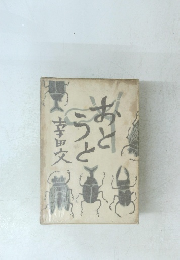 おと
うと
幸田文